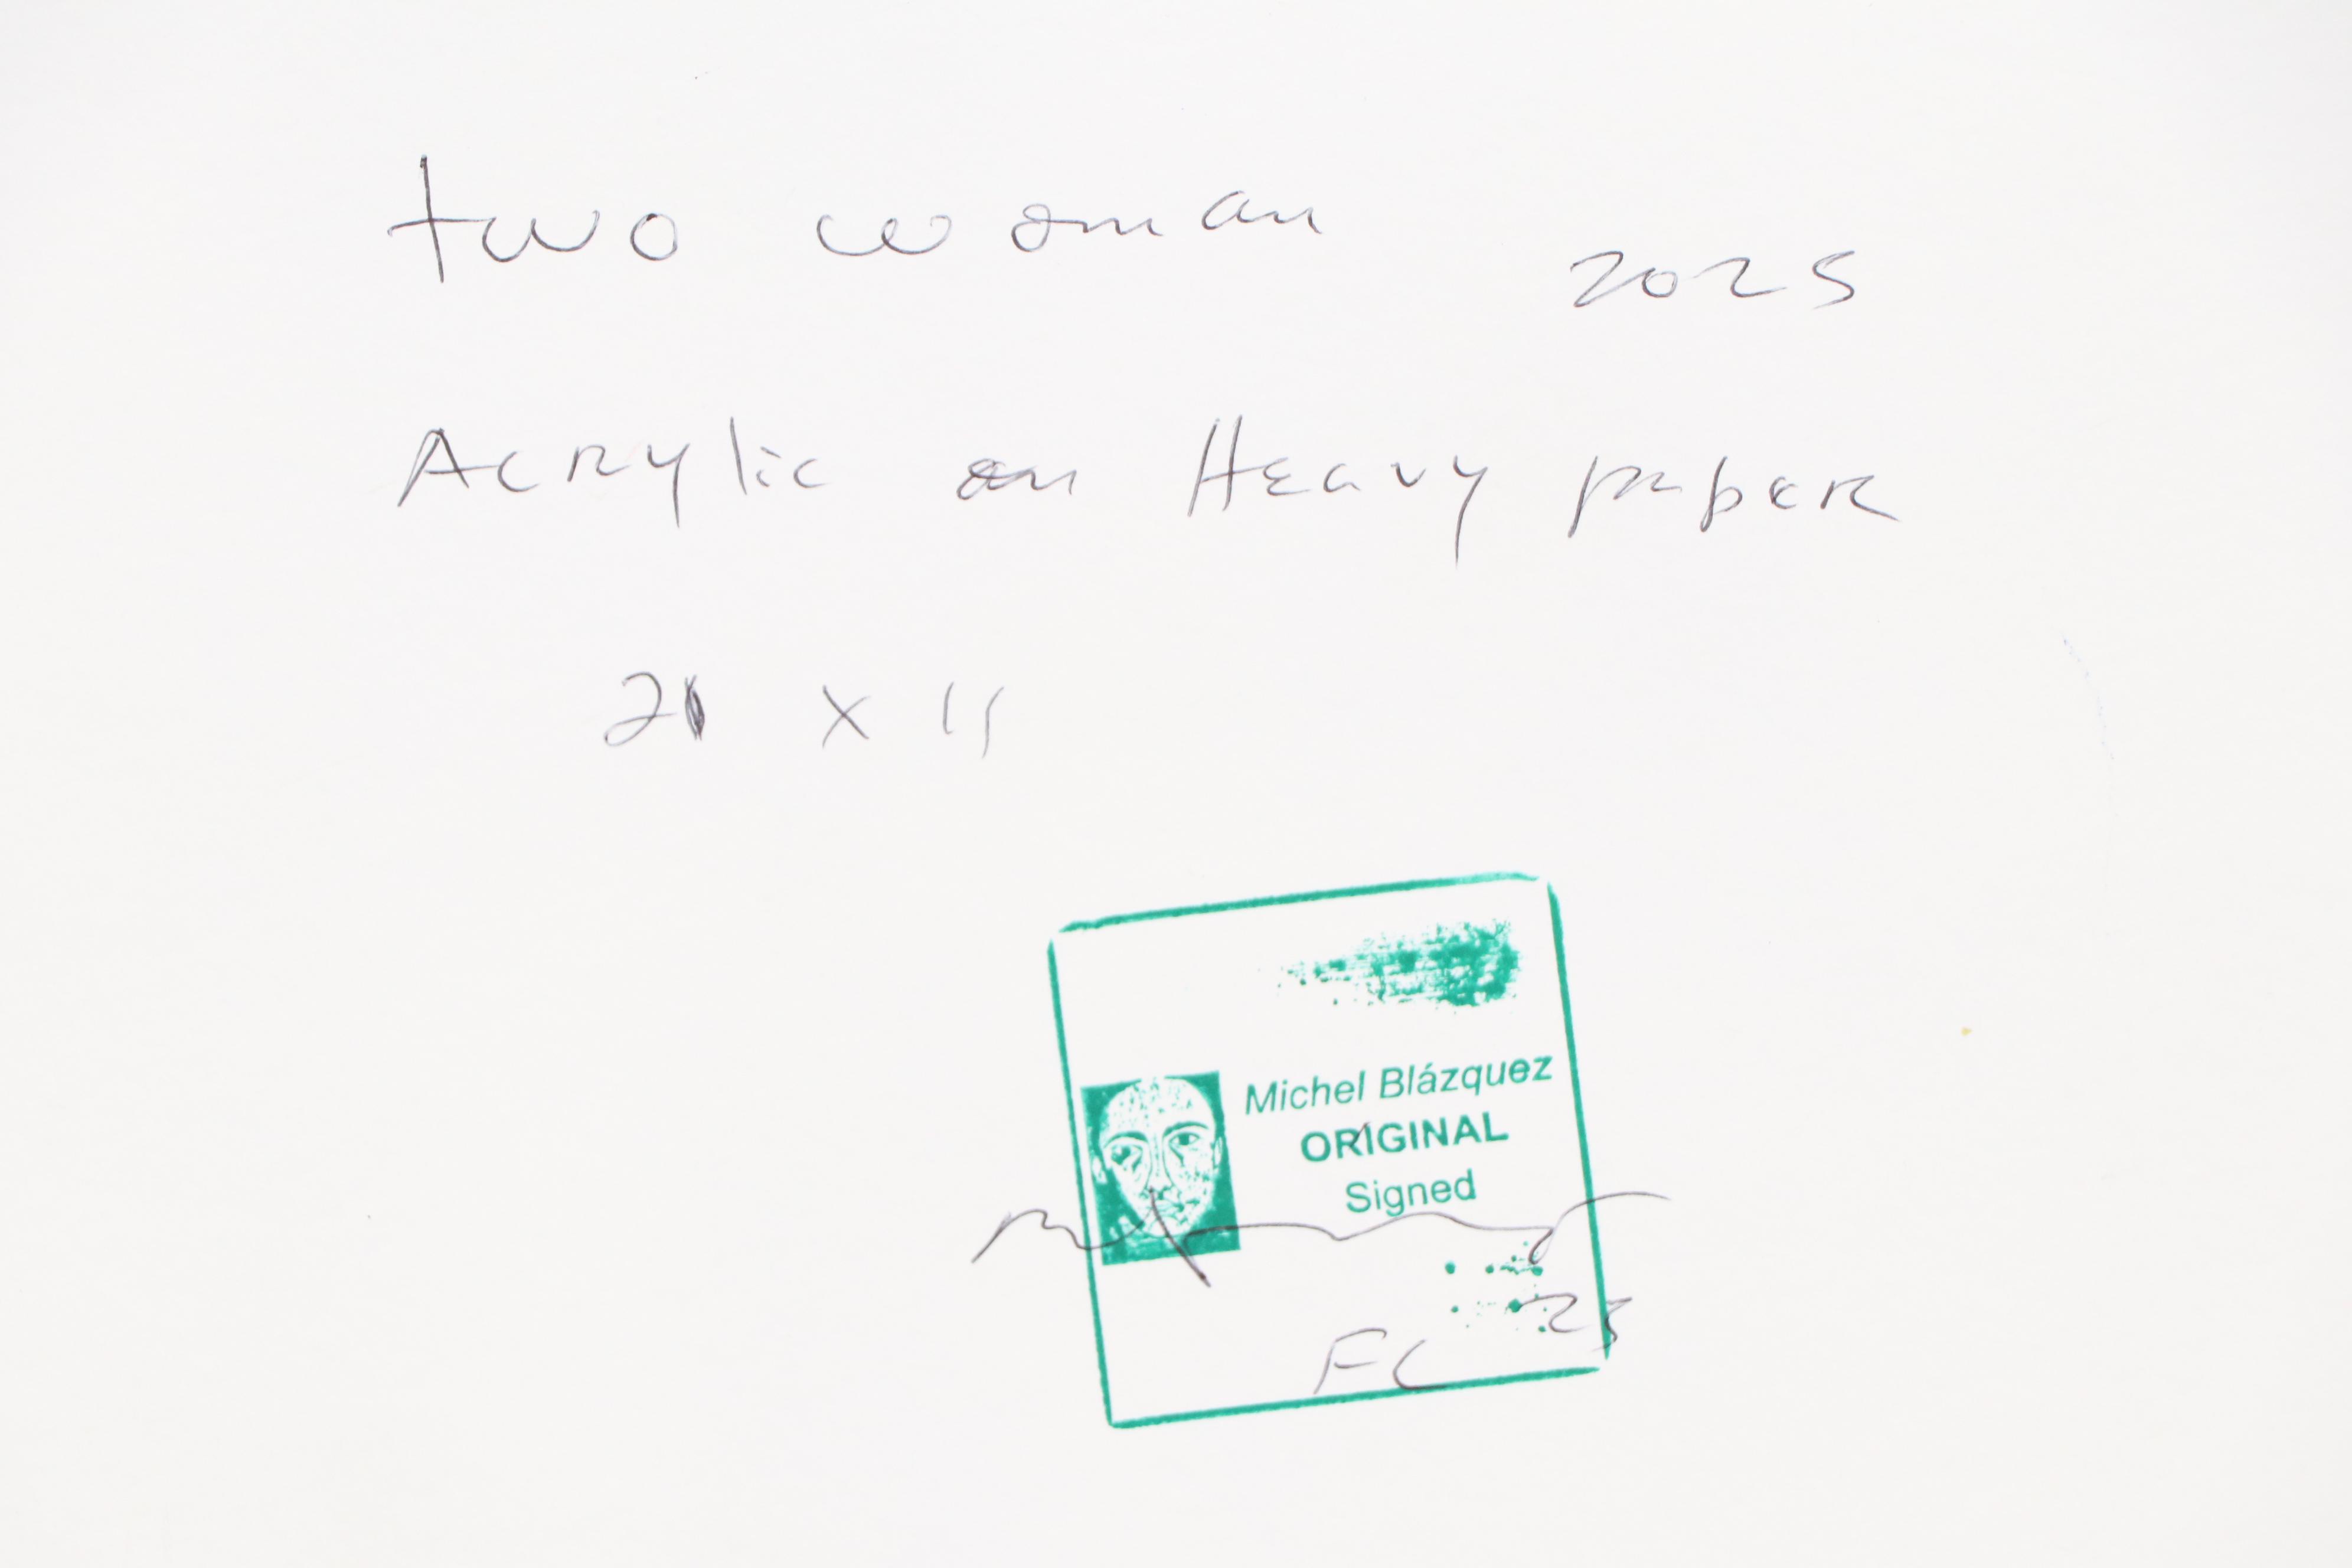 two woman 2025
Acrylic on Heavy paper
21 x 15
Michel Blázquez
ORIGINAL
Signed
25
FC